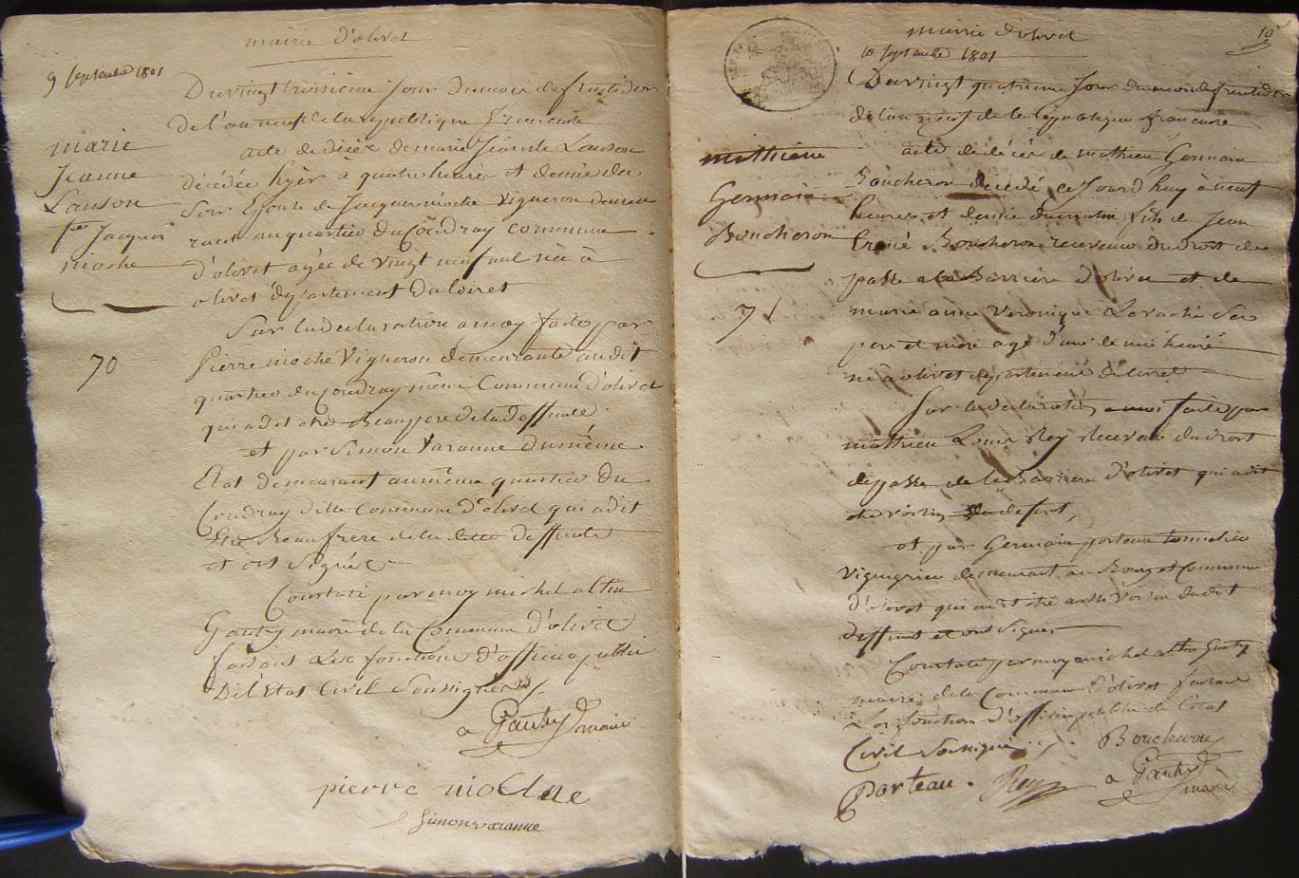 mairie d'olivet
9 septembre 1801
Du vingt troisieme Jour du mois de fructidor
de l'an neuf de la republique francaise
marie
Jeanne
Lanson
fe Jacques
mioche
70
acte de décéz de marie Jeanne Lanson
décédée hyèr à quatre heures et demie du
Soir Epouse de Jacques mioche Vigneron demeu
rant au quartier du Coudray commune
d'olivet agée de vingt neuf née à
olivet département du loiret
Sur la declaration a moy faite par
Pierre mioche Vigneron demeurante audit
quartier du Coudray même Commune d'olivet
qui a dit etre Beaupere de la deffunte
et par Simon Varanne du même
Etat demeurant au même quartier du
Coudray ditte Commune d'olivet qui a dit
etre Beaufrere de la ditte deffunte
et ont Signéz
Constaté par moy michel altin
Gaudry maire de la Commune d'olivet
faisant Les fonctions d'officier public
De l'Etat Civil Soussigné
maire
pierre mioche
Simon varanne
mairie d'olivet
10
10 septembre 1801
Du vingt quatrieme Jour du mois de fructidor
de l'an neuf de la republique francaise
mathieu
Germain
Boucheron
71
acte de décés de mathieu Germain
Boucheron décédé ce Jourd'huy à neuf
heures et demie du matin fils de Jean
Boucheron receveur du droit de
passe a la Barriere d'olivet et de
marie anne Veronique Ses
pere et mere agé d'une heure
né a olivet departement du loiret
Sur la declaration a moi faite par
mathieu Louis Rey Receveur du droit
de passe de la Barriere d'olivet qui a dit
etre voisin du defunt,
et par Germain porteau tonnelier
Vigneron demeurant au Bourg et Commune
d'olivet qui a dit etre aussi Voisin dudit
deffunt et ont Signéz
Constaté par moy michel altin Gaudry
maire de la Commune d'olivet faisant
Les fonctions d'officier public de l'etat
Civil Soussigné
Boucheron
Porteau. Rey
maire